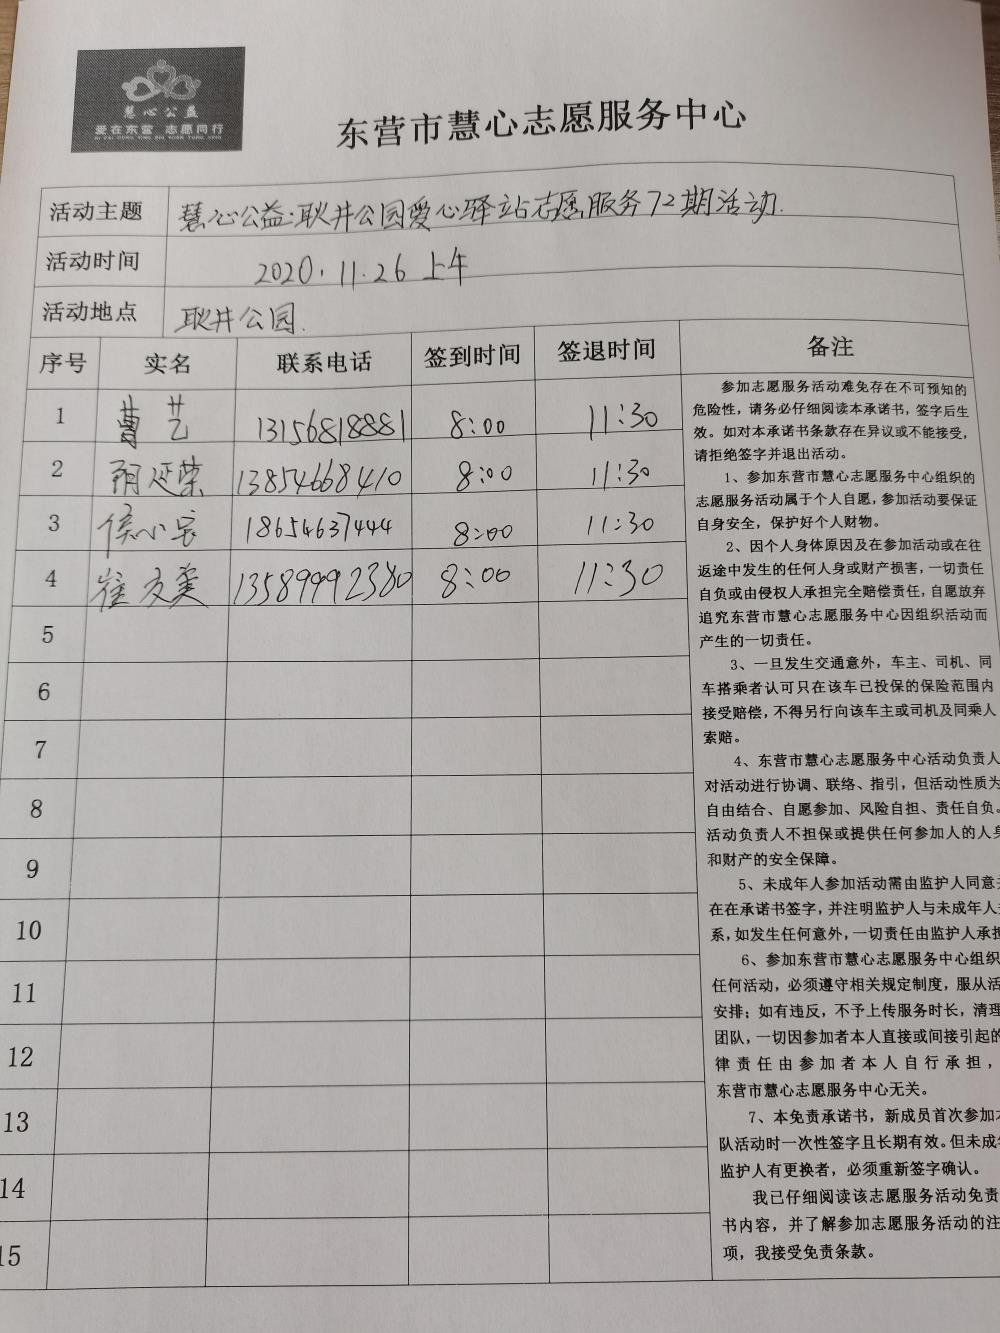 慧心公益
爱在东营 志愿同行
AI ZAI DONG YING ZHI YUAN TONG XING
东营市慧心志愿服务中心
活动主题 慧心公益·耿井公园爱心驿站志愿服务72期活动.
活动时间 2020.11.26上午
活动地点 耿井公园.
序号 实名 联系电话 签到时间 签退时间 备注
1 曹艺 13156818881 8:00 11:30
2 延荣 13854668410 8:00 11:30
3 侯小宝 18654637444 8:00 11:30
4 崔 13589992380 8:00 11:30
5
6
7
8
9
10
11
12
13
14
15
参加志愿服务活动难免存在不可预知的
危险性，请务必仔细阅读本承诺书，签字后生
效。如对本承诺书条款存在异议或不能接受，
请拒绝签字并退出活动。
1、参加东营市慧心志愿服务中心组织的
志愿服务活动属于个人自愿，参加活动要保证
自身安全，保护好个人财物。
2、因个人身体原因及在参加活动或在往
返途中发生的任何人身或财产损害，一切责任
自负或由侵权人承担完全赔偿责任，自愿放弃
追究东营市慧心志愿服务中心因组织活动而
产生的一切责任。
3、一旦发生交通意外，车主、司机、同
车搭乘者认可只在该车已投保的保险范围内
接受赔偿，不得另行向该车主或司机及同乘人
索赔。
4、东营市慧心志愿服务中心活动负责人
对活动进行协调、联络、指引，但活动性质为
自由结合、自愿参加、风险自担、责任自负。
活动负责人不担保或提供任何参加人的人身
和财产的安全保障。
5、未成年人参加活动需由监护人同意并
在在承诺书签字，并注明监护人与未成年人
系，如发生任何意外，一切责任由监护人承担
6、参加东营市慧心志愿服务中心组织
任何活动，必须遵守相关规定制度，服从活
安排；如有违反，不予上传服务时长，清理
团队，一切因参加者本人直接或间接引起的
律责任由参加者本人自行承担，
东营市慧心志愿服务中心无关。
7、本免责承诺书，新成员首次参加本
队活动时一次性签字且长期有效。但未成年
监护人有更换者，必须重新签字确认。
我已仔细阅读该志愿服务活动免责
书内容，并了解参加志愿服务活动的注
项，我接受免责条款。